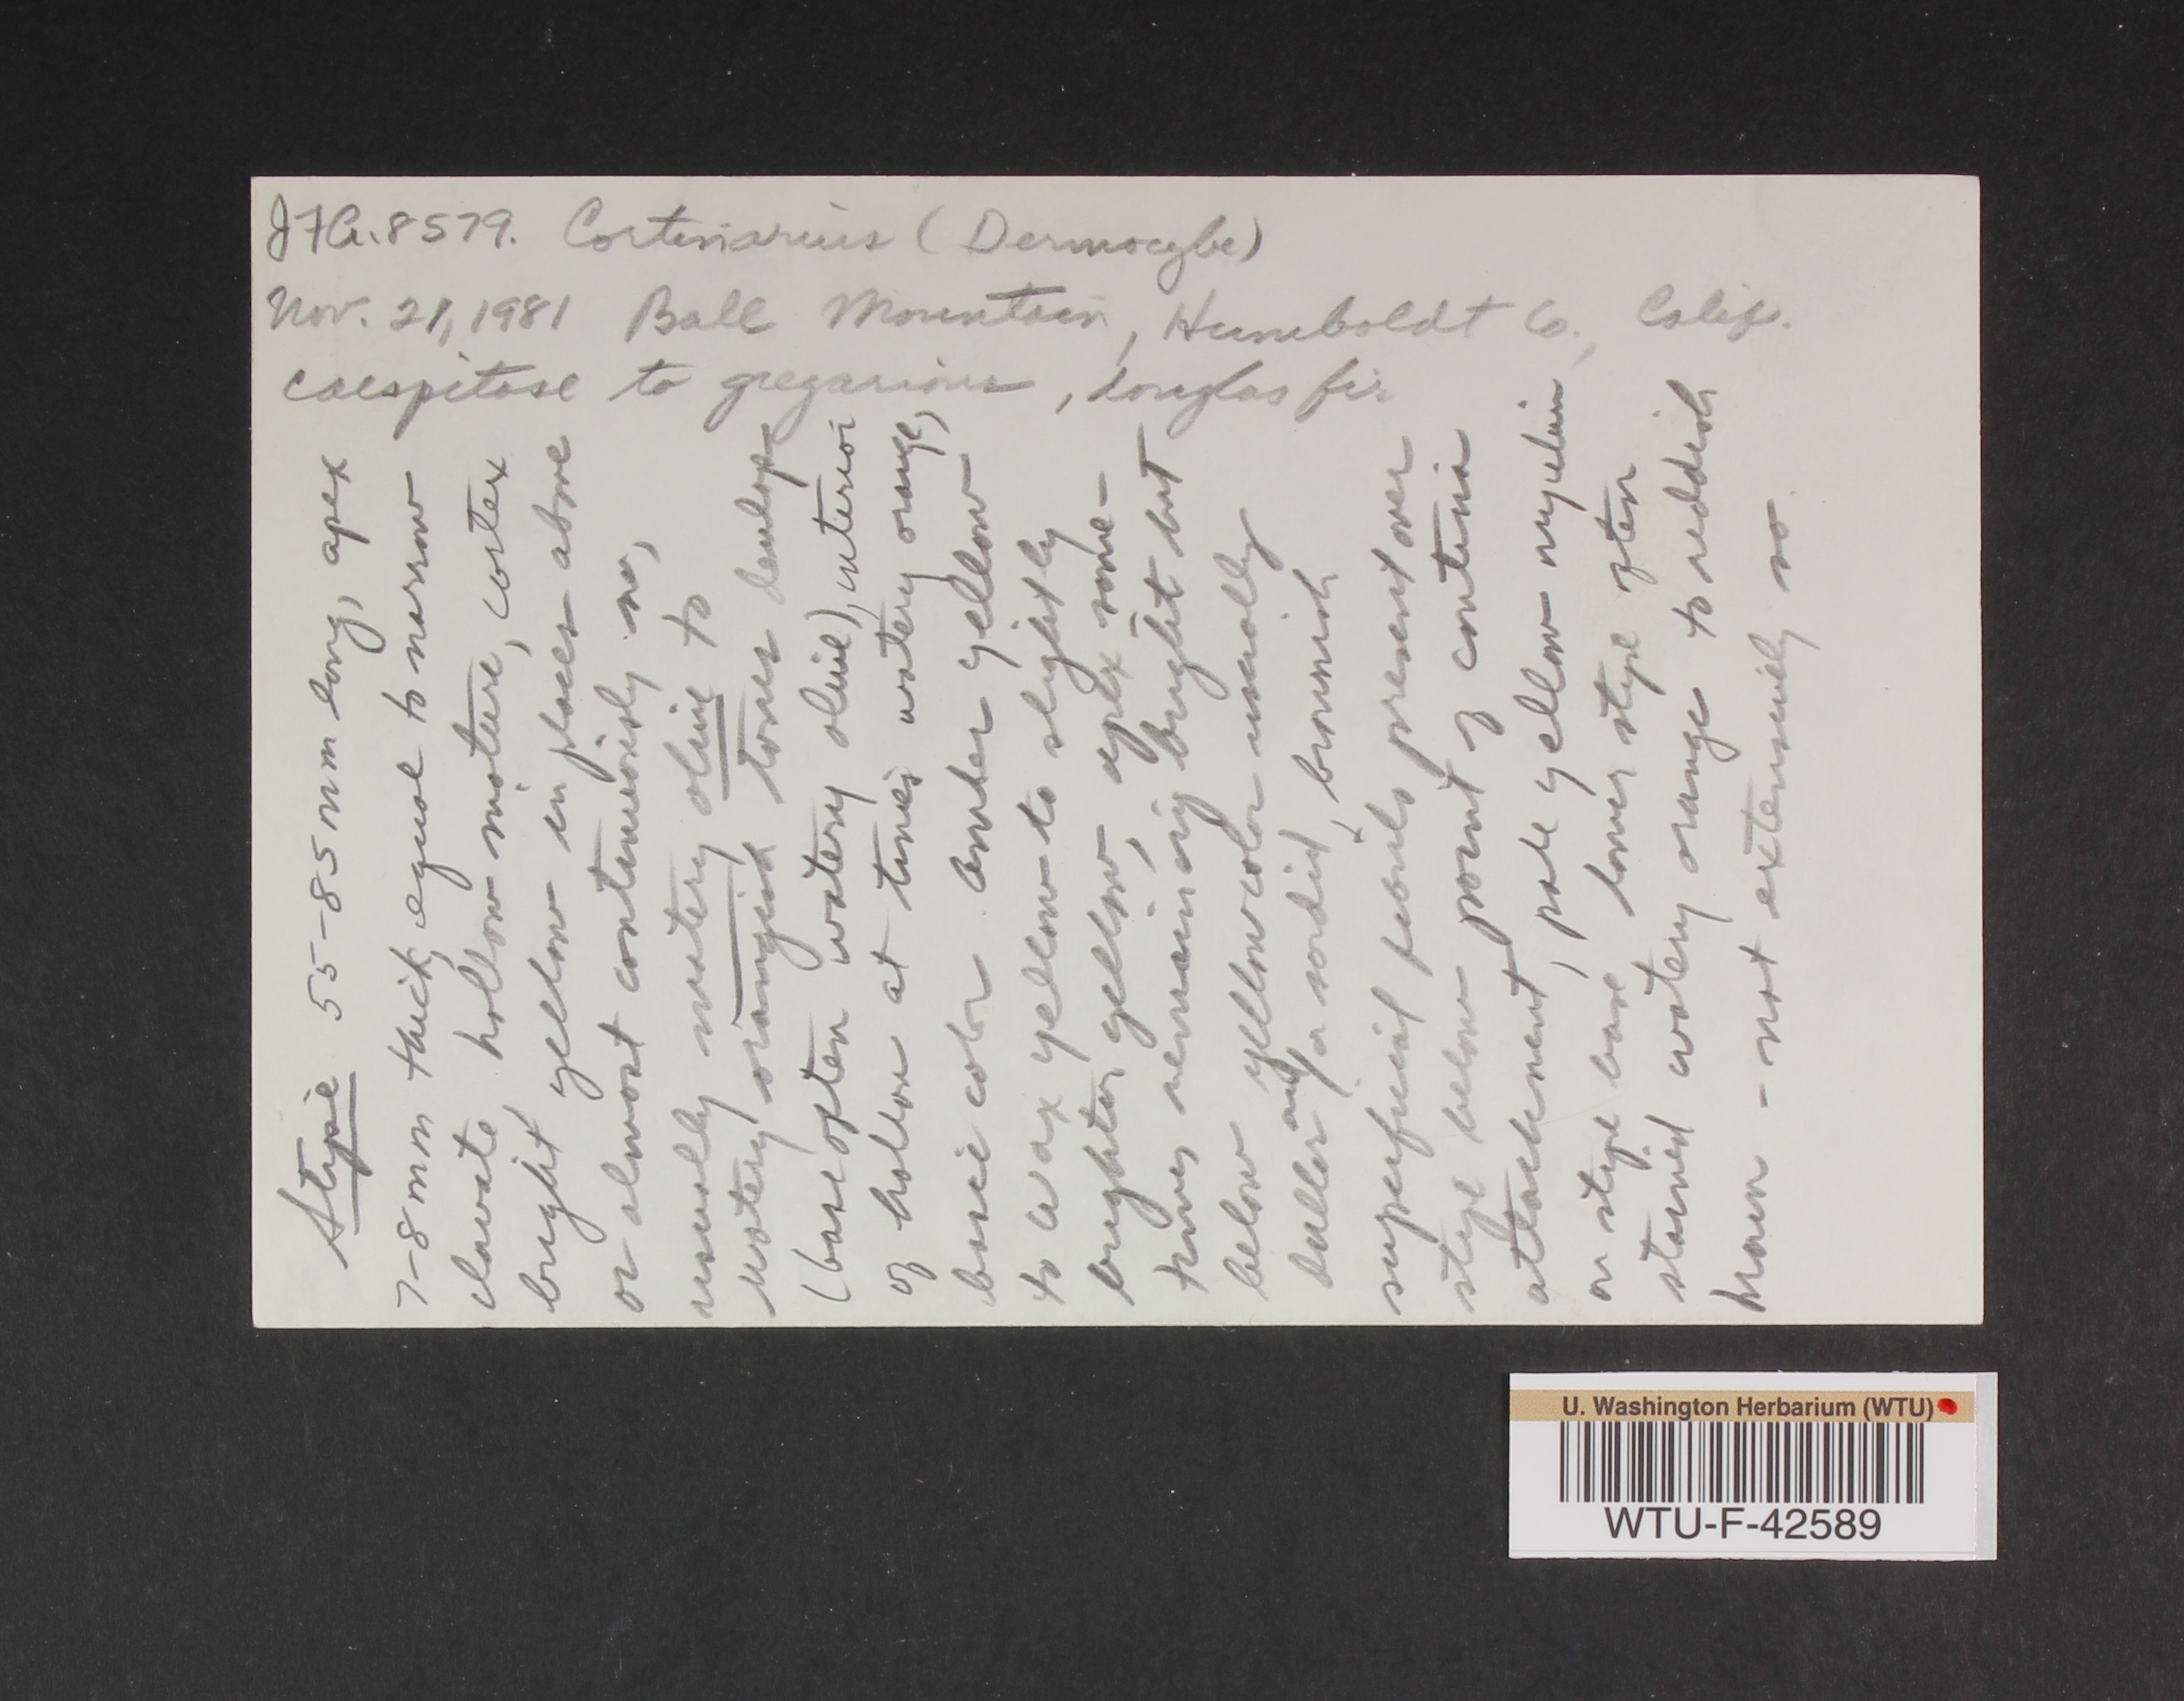 JFA.8579. Cortinarius (Dermocybe)
Nov. 21, 1981 Ball Mountain, Humboldt Co., Calif.
caespitose to gregarious, douglas fir
Stipe 55-85 mm long, apex
7-8 mm thick, equal to narrow
clavate, hollow mature, cortex
bright yellow in places above
or almost continuously so,
usually watery olive to
watery orangish tones develope
(base often watery olive), interior
of hollow at times watery orange,
basic color amber yellow
to wax yellow to slightly
brighter yellow, apex some-
times remaining bright but
below yellow color usually
duller and/a sordid, brownish
superficial fibrils present over
stipe below point of cortinia
attachment, pale yellow mycelium
on stipe base lower stipe often
stained watery orange to reddish
brown - not extensively so.
U. Washington Herbarium (WTU)
WTU-F-42589